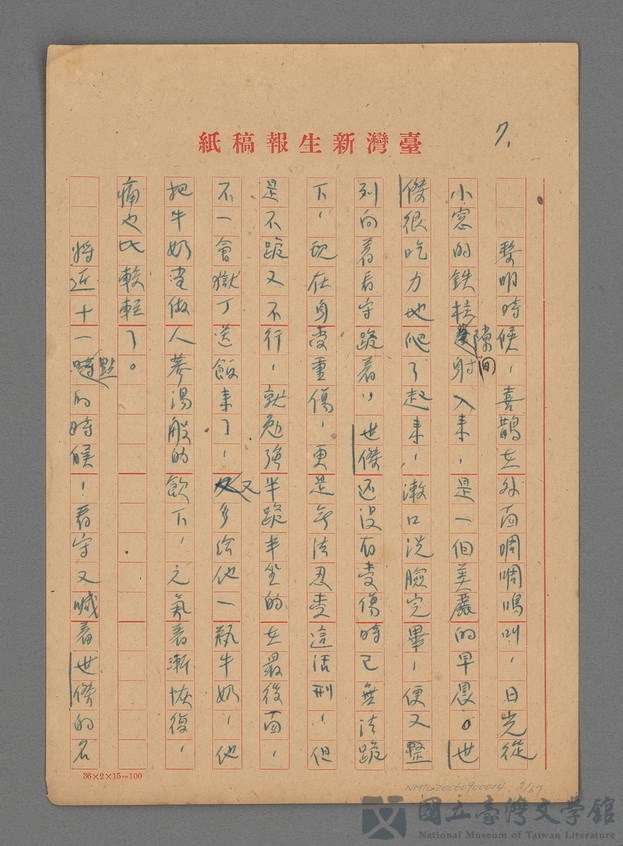 7.
臺灣新生報稿紙
黎明時候,喜鵲在外面啁啁鳴叫,日光從
小窓的鉄柱隙間射入来,是一個美麗的早晨。世
傑很吃力地爬了起来,漱口洗臉完畢,便又整
列向着看守跪着,世傑还沒有受傷時已無法跪
下,現在身受重傷,更是無法忍受這活刑,但
是不跪又不行,就勉強半跪半坐的在最後面,
不一會獄丁送飯来了,又多給他一瓶牛奶,他
把牛奶當做人蔘湯般的飲下,元氣着漸恢復,
痛也比較軽了。
將近十一點的時候,看守又喊着世傑的名
36×2×15=100
NMTL20060900014 7/27
國立臺灣文學館
National Museum of Taiwan Literature